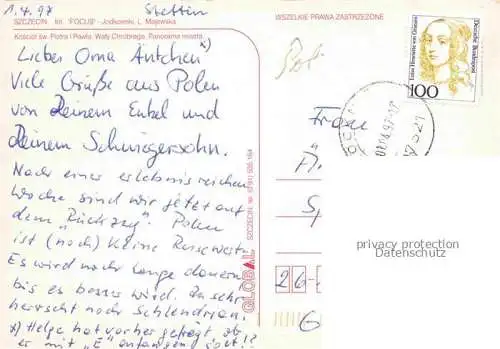 1.4.97 Stettin
SZCZECIN fot. "FOCUS" - Jodkowski, L. Majewska
WSZELKIE PRAWA ZASTRZEŻONE
Kościół św. Piotra i Pawła. Wały Chrobrego. Panorama miasta.
Lieber Oma Äntchen x)
Viele Grüße aus Polen
von Deinem Enkel und
Deinem Schwiegersohn.
Nach einer erlebnisreichen
Woche sind wir jetzt auf
dem "Rückzug". Polen
ist (noch) keine Reise wert.
Es wird noch lange dauern
bis es besser wird. Zu sehr
herrscht noch Schlendrian.
x) Helge hat vorher gefragt, ob
er mit "E" anfangen soll!!
GLOBAL
SZCZECIN
Luise Henriette von Oranien
Deutsche Bundespost
100
Frau
26
privacy protection
Datenschutz